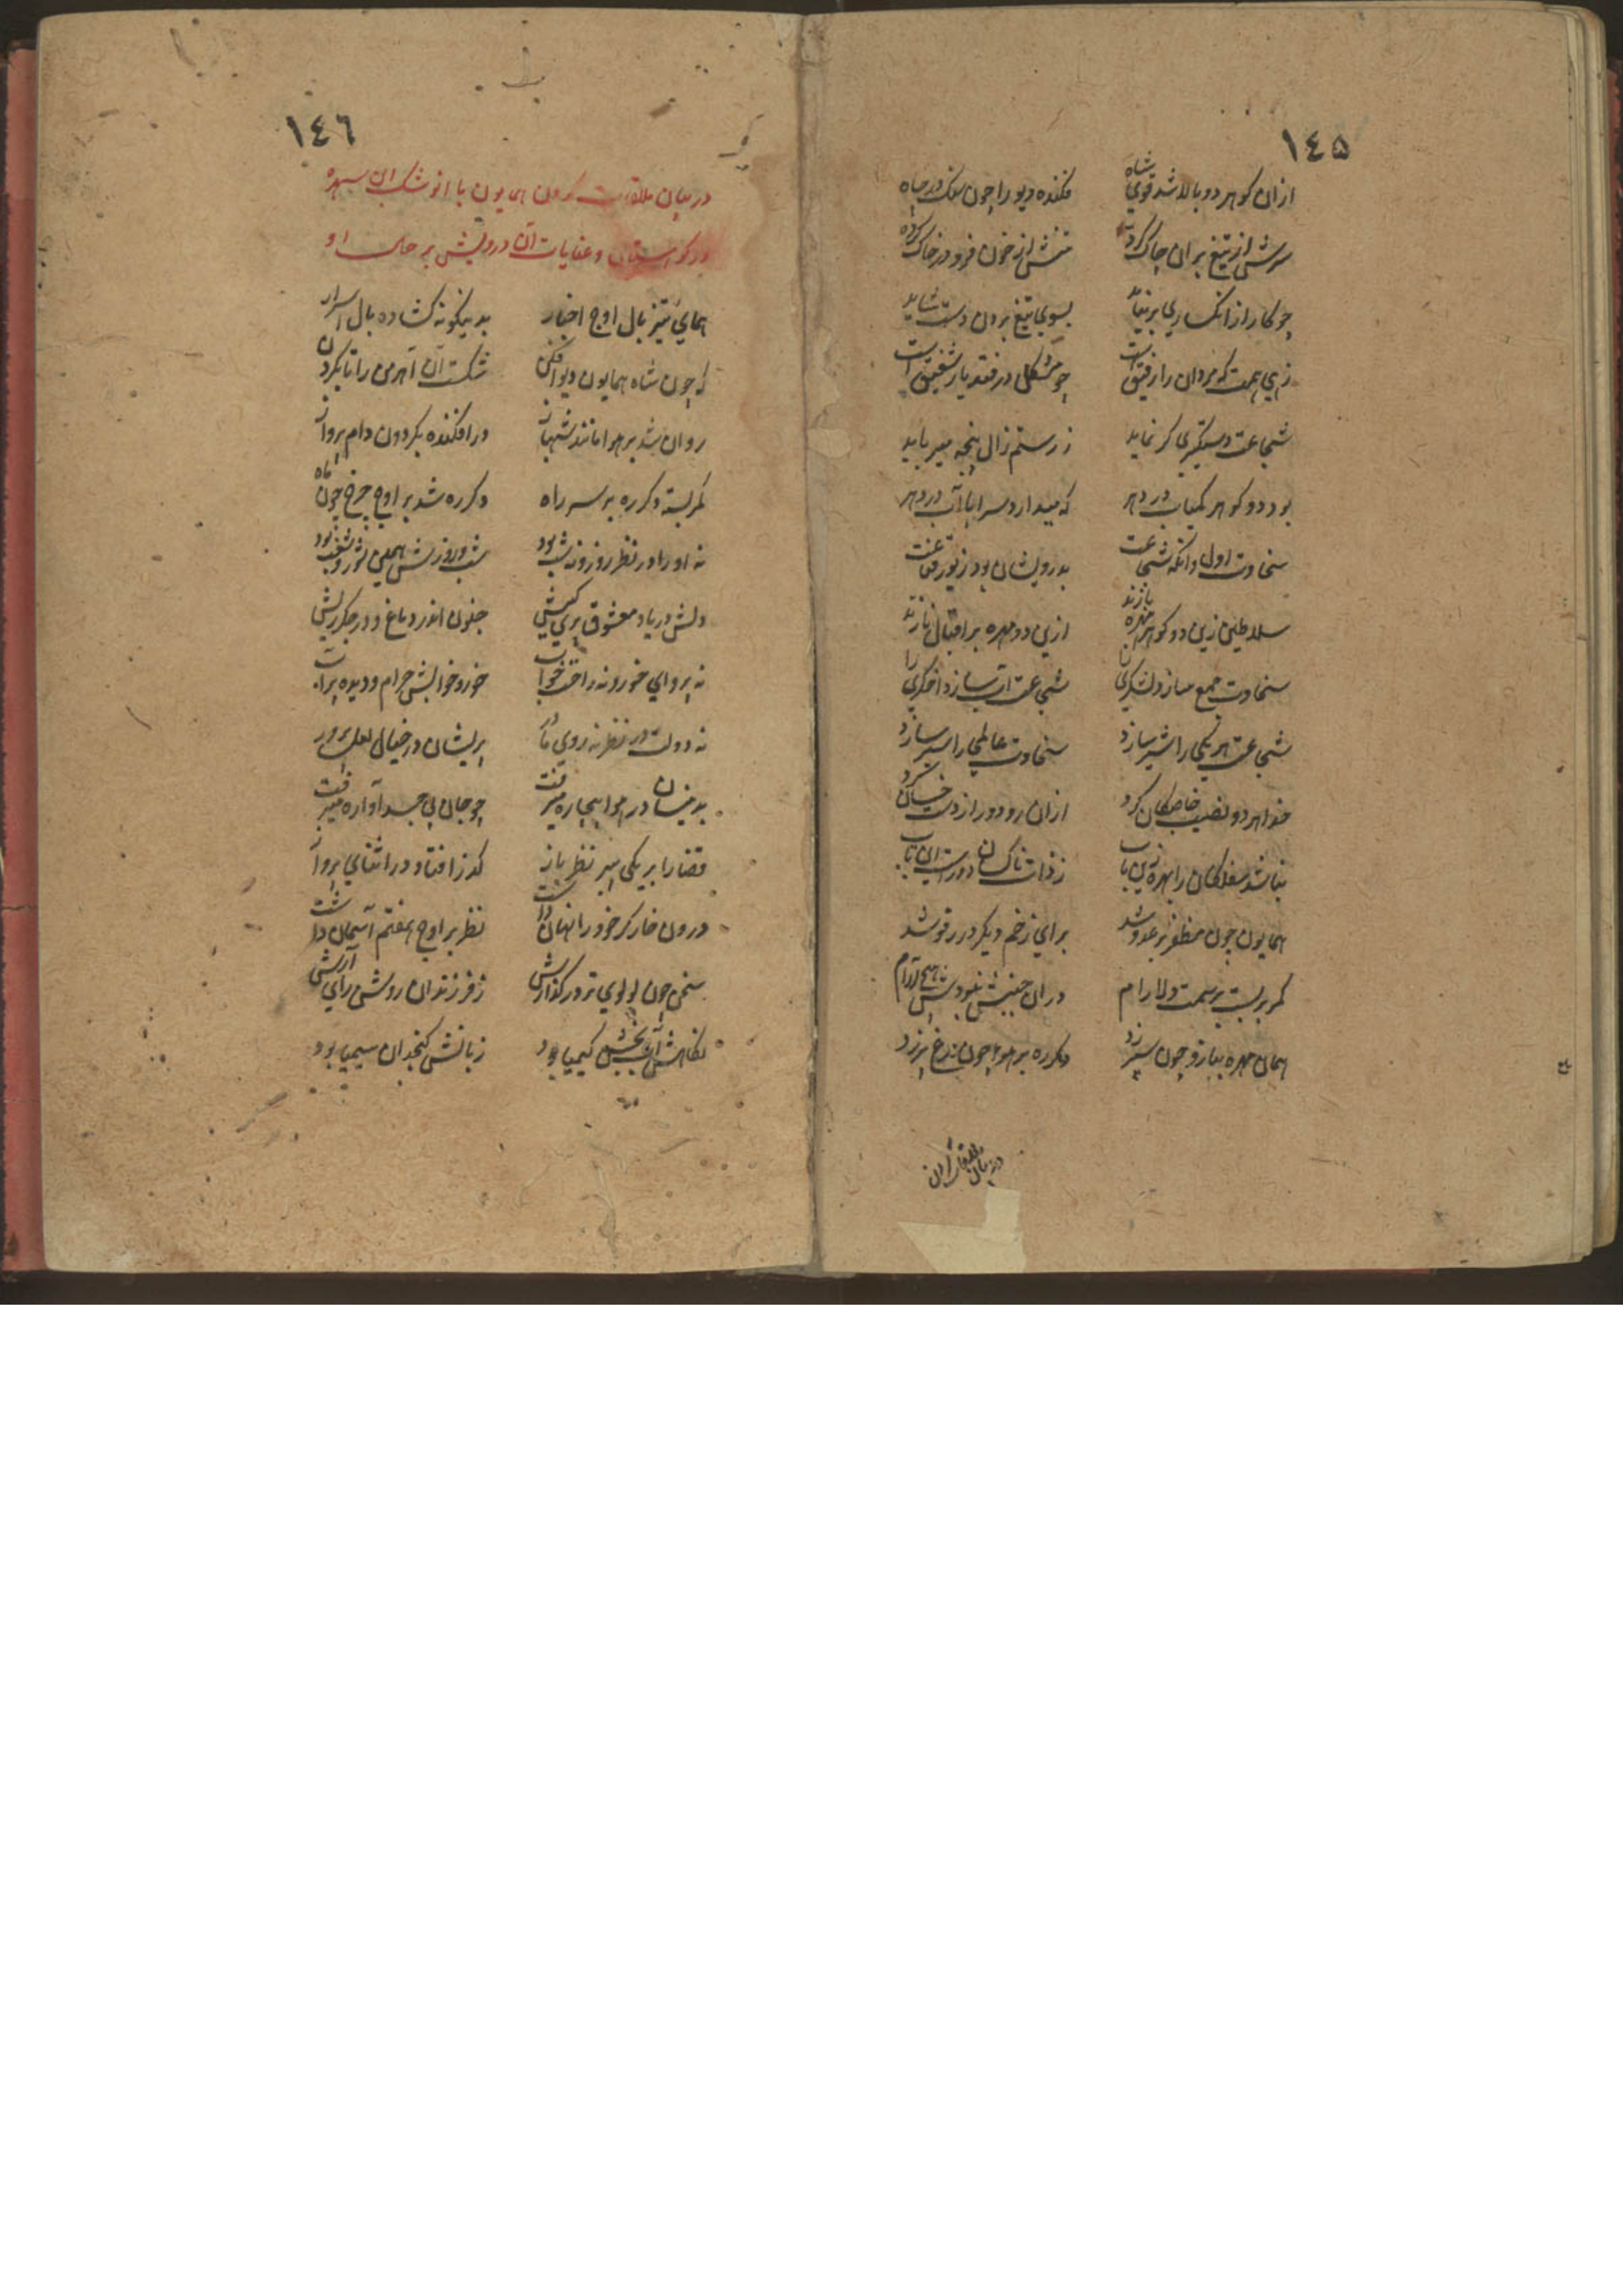 ١٤٥
ازان کوهر دو بالا شد قوی شاه فکنده دیو را چون سنک در چاه
سرش از تیغ بران چاک کرده تنش از خون فرو در خاک کرده
چو کار از انکساری بر نیاید بسوی تیغ بردن دست شاید
زهی همت که مردان را رفیق است چو مشکل در فتد یار شفیق است
شجاعت دستکیری کر نماید ز رستم زال پنجه میرباید
بود دو کوهر کمیاب در دهر که میدارد سراپا آب در دهر
سخاوت اول وانکه شجاعت بدرویشان بود زیور قناعت
سلاطین زین دو کوهر بهره یازند ازین دو مهره بر اقبال نازند
سخاوت جمع سازد لشکری را شجاعت آب سازد اخکری را
شجاعت هر یکی را شیر سازد سخاوت عالمی را سیر سازد
خدا هر دو نصیب خاصکان کرد ازان رو دور از دست خسان کرد
نباشد سفلکان را بهره زین باب ز ذات ناکسان دورست این تاب
همایون چون مظفر بر عدو شد برای زخم دیکر در رفو شد
کمر بربست بر سمت دلارام دران جنبش نبودش هیچ آرام
همان مهره ببازو چون سپر زد دکرره بر هوا چون مرغ پر زد
در بیان ملاقات کردن
١٤٦
در بیان ملاقات کردن همایون با انوشک ابن سپهره
در کوهستان و عنایات آن درویش بر حال او
همای تیز بال اوج اخبار بدینکونه کشاده بال اسرار
که چون شاه همایون دیو افکن شکست آن اهرمن را تا بکردن
روان شد بر هوا مانند شهباز در افکنده بکردون دام پرواز
کمر بسته دکرره بر سر راه دکرره شد بر اوج چرخ چون ماه
نه او را در نظر روز و نه شب بود شب و روزش همین شور و شغب بود
دلش در یاد معشوق پری کیش جنون اندر دماغ و در جکر ریش
نه پروای خور و نه راحت خواب خور و خوابش حرام و دیده پر آب
نه دولت در نظر نه روی مادر پریشان در خیال لعل پرور
بدینسان در هوا بیچاره میرفت چو جان بی جسد آواره میرفت
قضا را بر یکی پیر نظر باز کذر افتاد در اثنای پرواز
درون غار کر خود را نهان داشت نظر بر اوج هفتم آسمان داشت
سخن چون لولوی تر در کذارش ز فرزندان روشن رای آرش
نکاهش آب بخش کیمیا بود زبانش کنجدان سیمیا بود